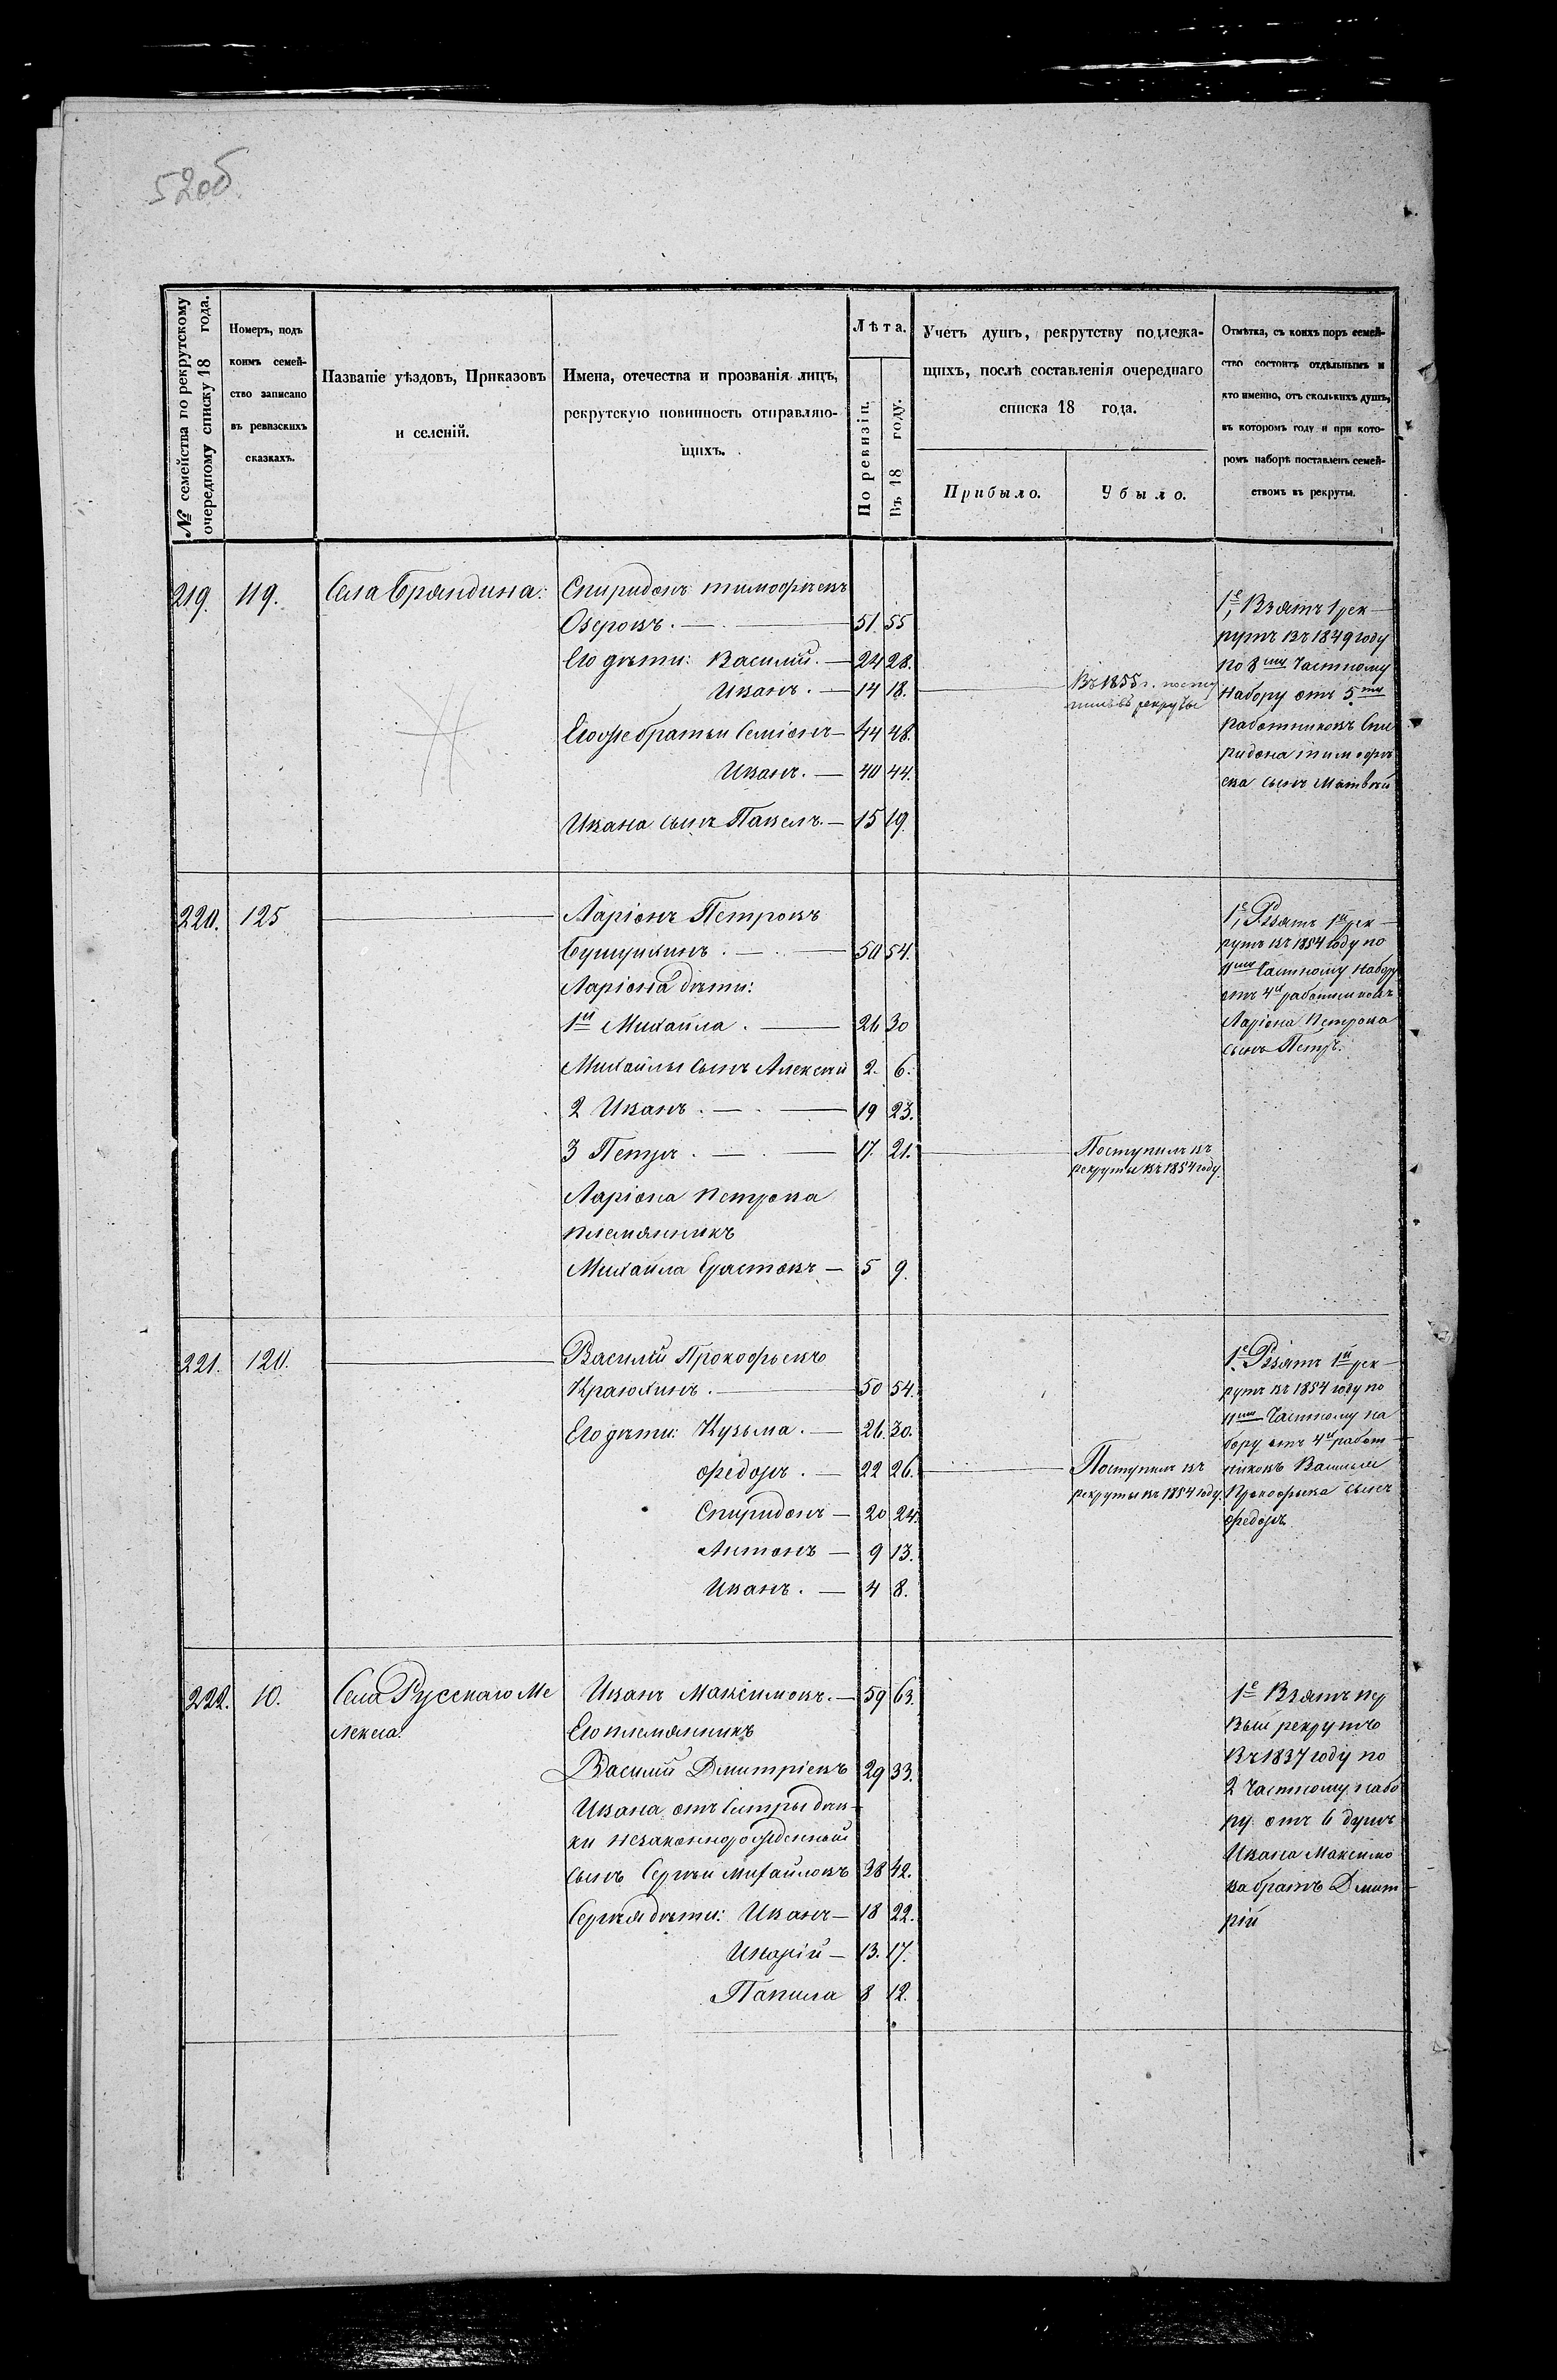 52об
№ семейства по рекрутскому
очередному списку 18 года.
Номеръ, подъ
коимъ семей-
ство записано
въ ревизскихъ
сказкахъ.
Названіе уѣздовъ, Приказовъ
и селеній.
Имена, отечества и прозванія лицъ,
рекрутскую повинность отправляю-
щихъ.
Лѣта.
По ревизіи.
Въ 18 году.
Учетъ душъ, рекрутству подлежа-
щихъ, послѣ составленія очереднаго
списка 18 года.
Прибыло.
Убыло.
Отмѣтка, съ коихъ поръ семей-
ство состоитъ отдѣльнымъ и
кто именно, отъ сколькихъ душъ,
въ которомъ году и при кото-
ромъ наборѣ поставленъ семей-
ствомъ въ рекруты.
219. 119. Села Бряндина: Спиридонъ тимофѣевъ
Озеровъ. 51. 55
Его дѣти: Василій. 24 28.
Иванъ. 14 18.
Въ 1855 г. посту
пилъ въ рекруты
Его же братьи Семіонъ 44 48.
Иванъ. 40 44.
Ивана сынъ Павелъ. 15 19.
1е, Взятъ 1 рек
рутъ въ 1849 году
по 8му Частному
набору отъ 5ти
работниковъ Спи
ридона тимофѣ
ева сынъ Матвѣй
220. 125 Ларіонъ Петровъ
50 54.
Ларіона дѣти:
1й Михайла. 26 30
Михайлы сынъ Алексѣй 2. 6.
2 Иванъ. 19 23.
3 Петръ. 17. 21.
Поступилъ въ
рекруты въ 1854 году.
Ларіона Петрова
племянникъ
Михайла 5 9.
1е, Взятъ 1й рек
рутъ въ 1854 году по
11му Частному набору
отъ 4х работниковъ
Ларіона Петрова
сынъ Петръ.
221. 120. Василій Прокофьевъ
Краюхинъ. 50 54.
Его дѣти: Кузьма. 26. 30.
Федоръ. 22 26.
Поступилъ въ
рекруты въ 1854 году.
Спиридонъ 20 24.
Антонъ 9 13.
Иванъ. 4 8.
1е. Взятъ 1й рек
рутъ въ 1854 году по
11му Частному на
бору отъ 4х работ
никовъ Василья
Прокофьева сынъ
Федоръ.
222. 10. Села Русскаго Ме
лекеса.
Иванъ Максимовъ. 59 63.
Его племянникъ
Василій Дмитріевъ 29 33.
Ивана отъ Сестры дѣв-
ки незаконнорожденный
сынъ Сергѣй Михайловъ 38 42.
Сергѣя дѣти: Иванъ 18 22.
13. 17.
8 12.
1е Взятъ пер
вый рекрутъ
въ 1837 году по
2 Частному набо
ру отъ 6 душъ
Ивана Максимо
ва братъ Дмит
рій